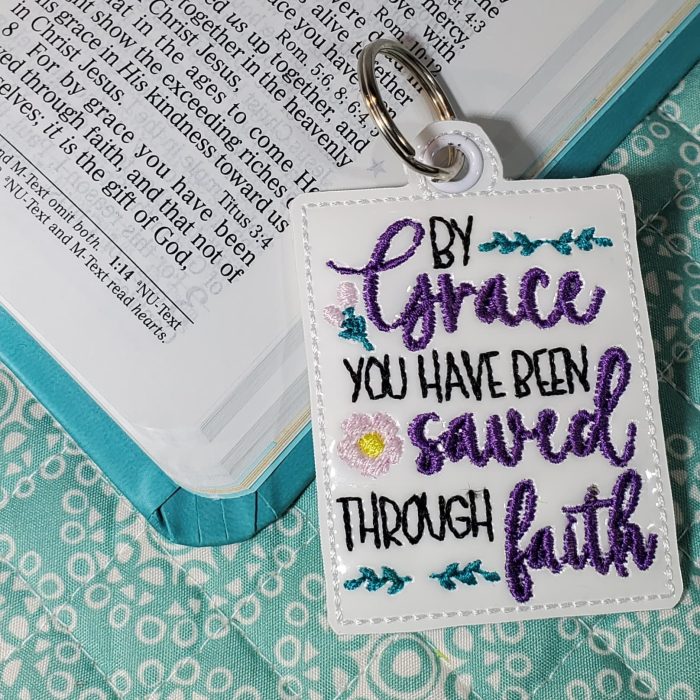 mercy,
love with
et. 4:3
Rom. 10:12
you have
Rom. 5:6, 8; 6:4, 5
ed us up together, and
together in the heavenly
in Christ Jesus,
that in the ages to come He
t show the exceeding riches
in His kindness toward us
in Christ Jesus. Titus 3:4
8 For by grace you have been
ved through faith, and that not of
selves; it is the gift of God,
and M-Text omit both. 1:14 ᵃNU-Text
ᵃNU-Text and M-Text read hearts.
BY
Grace
YOU HAVE BEEN
saved
THROUGH
faith